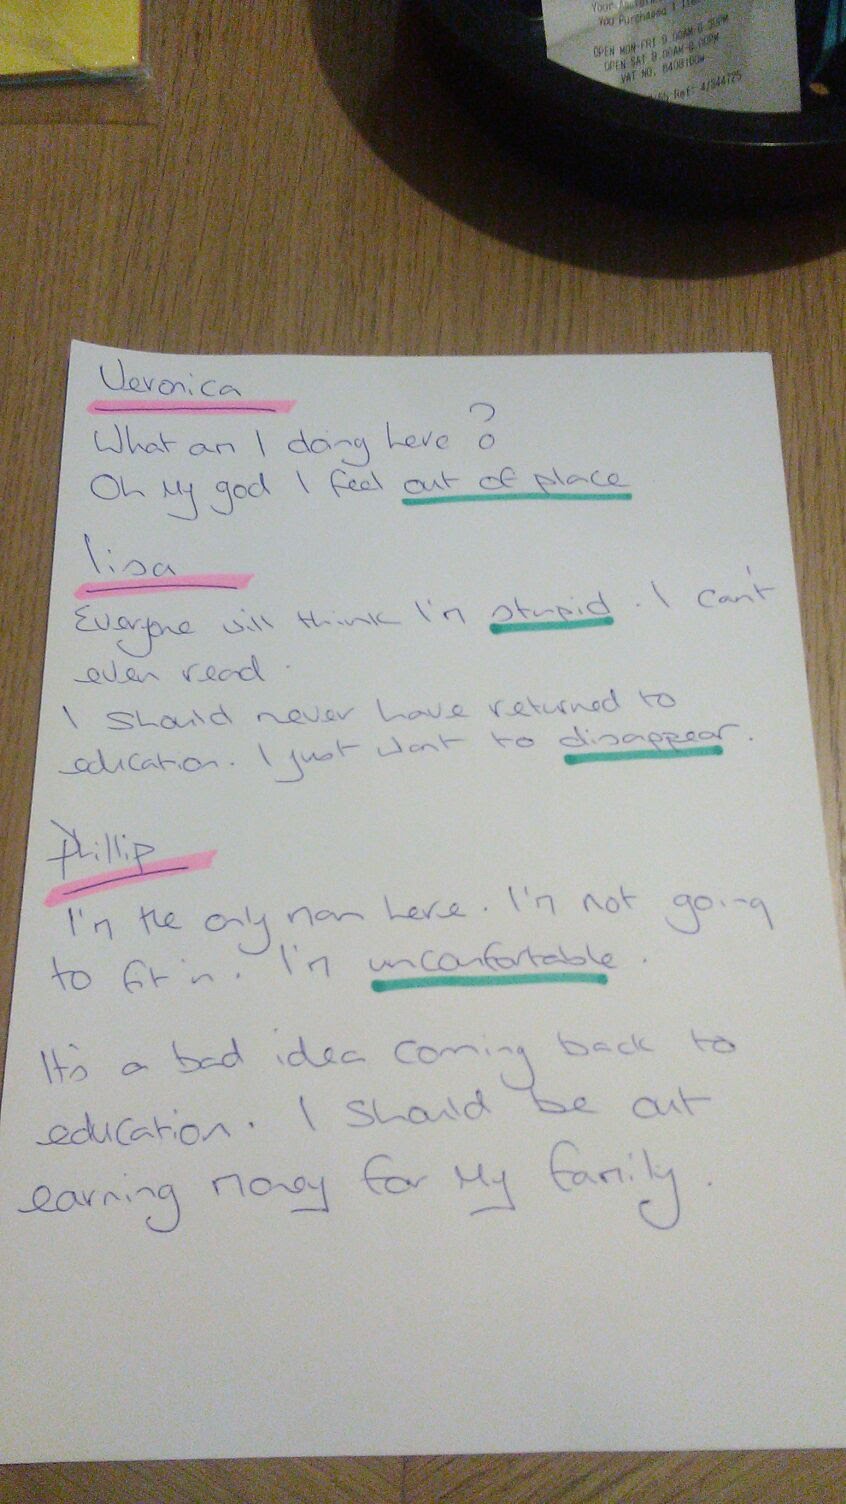 You Purchased 1
OPEN MON-FRI 9.00AM-8.30PM
OPEN SAT 9.00AM-8.00PM
VAT NO.
Ref: 4/844725
Veronica
What am I doing here ?
Oh My god I feel out of place
lisa
Everyone will think I'm stupid. I can't
even read.
I should never have returned to
education. I just want to disappear.
Phillip
I'm the only man here. I'm not going
to fit in. I'm uncomfortable.
It's a bad idea coming back to
education. I should be out
earning money for my family.